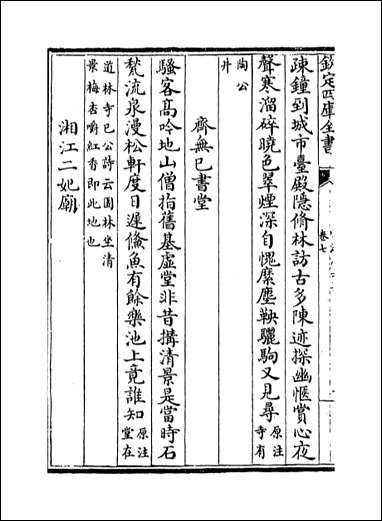 欽定四庫全書
卷七
疎鐘到城市臺殿隱脩林訪古多陳迹探幽愜賞心夜
聲寒溜碎曉色翠煙深自愧縻塵鞅驪駒又見尋原注寺有
陶公井
齊無已書堂
騷客高吟地山僧指舊基虛堂非昔搆清景是當時石
甃流泉漫松軒度日遲鯈魚有餘樂池上竟誰知原注堂在
道林寺已公詩云園林坐清
景梅杏嚼紅香即此地也
湘江二妃廟